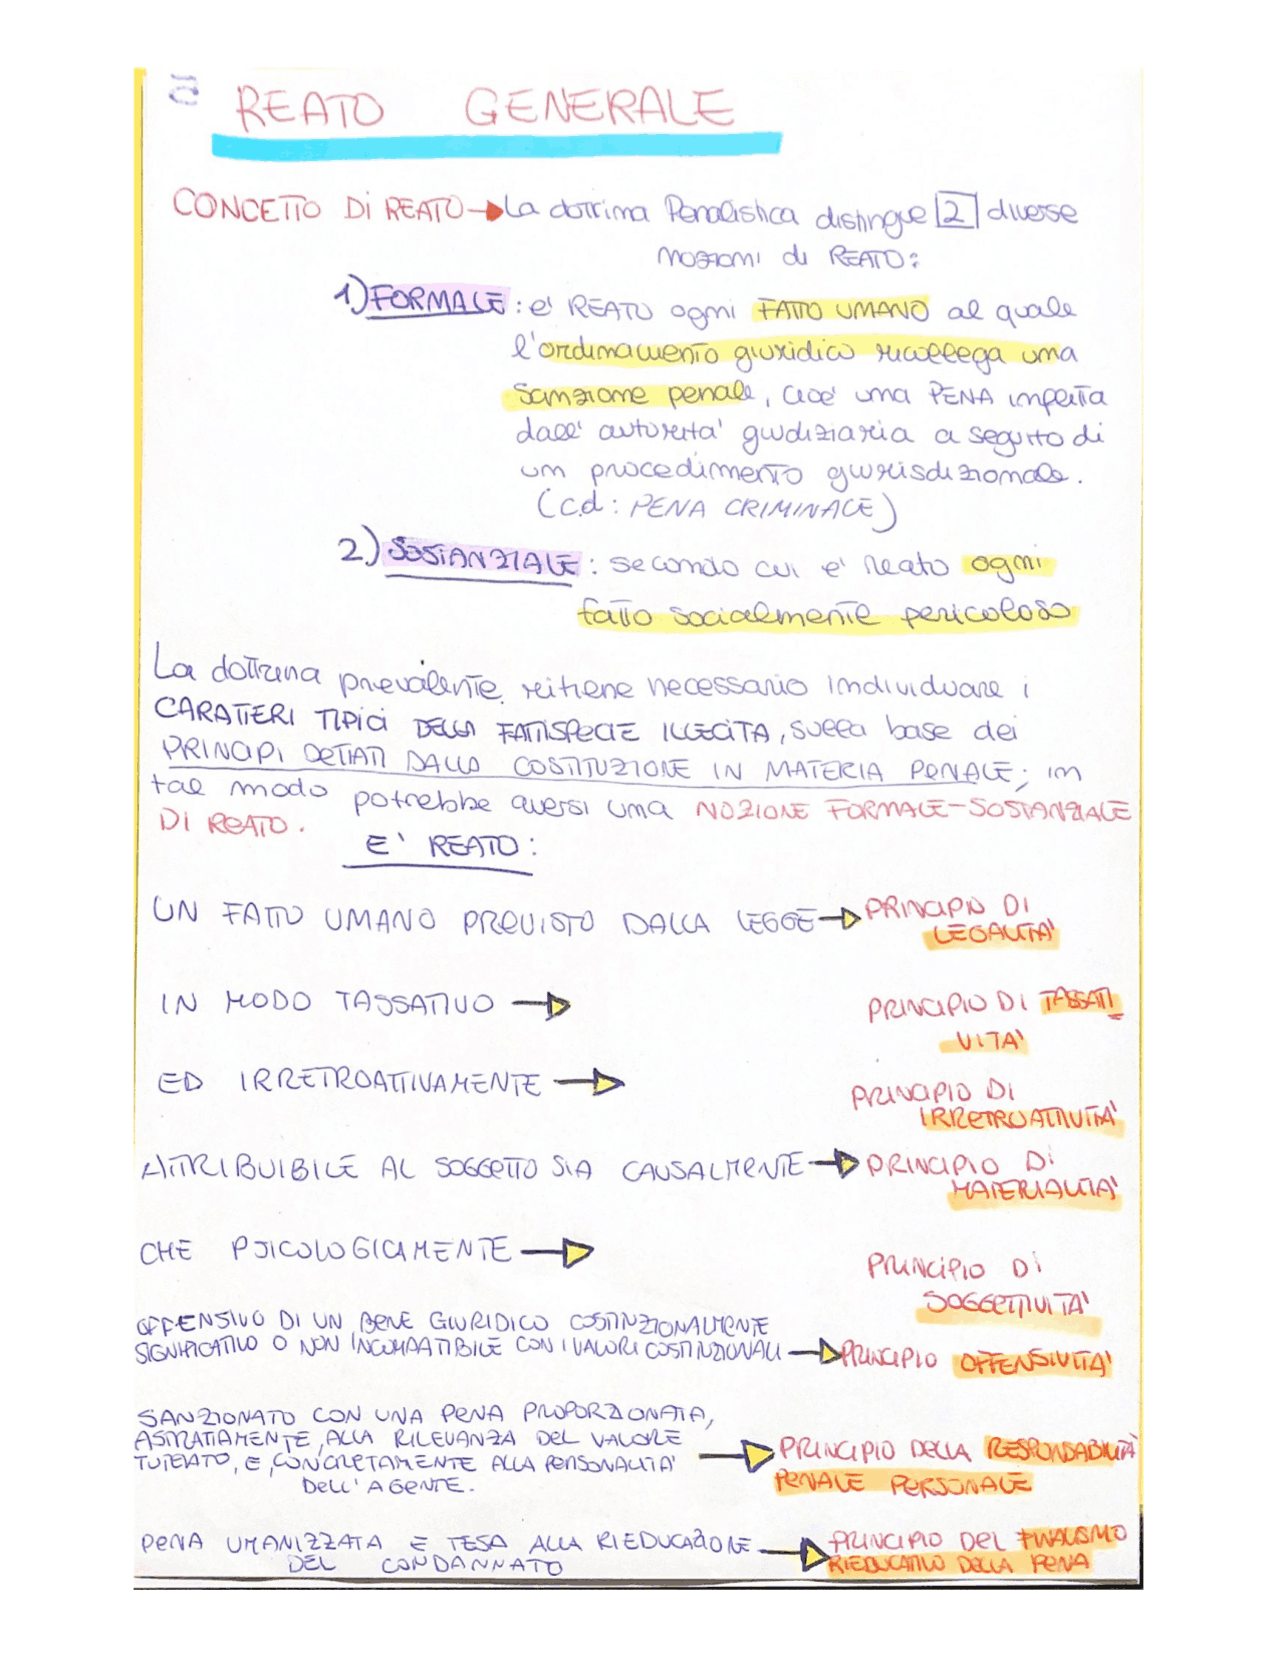 REATO GENERALE
CONCETTO DI REATO → La dottrina Penalistica distingue 2 diverse
nozioni di REATO:
1) FORMALE: e' REATO ogni FATTO UMANO al quale
l'ordinamento giuridico ricollega una
sanzione penale, cioe' una PENA impartita
dall' autorita' giudiziaria a seguito di
un procedimento giurisdizionale.
(c.d: PENA CRIMINALE)
2.) SOSTANZIALE: secondo cui e' reato ogni
fatto socialmente pericoloso
La dottrina prevalente ritiene necessario individuare i
CARATTERI TIPICI DELLA FATTISPECIE ILLECITA, sulla base dei
PRINCIPI DETTATI DALLA COSTITUZIONE IN MATERIA PENALE; in
tal modo potrebbe aversi una NOZIONE FORMALE-SOSTANZIALE
DI REATO.
E' REATO:
UN FATTO UMANO PREVISTO DALLA LEGGE → PRINCIPIO DI
LEGALITA'
IN MODO TASSATIVO → PRINCIPIO DI TASSATI
VITA'
ED IRRETROATTIVAMENTE → PRINCIPIO DI
IRRETROATTIVITA'
ATTRIBUIBILE AL SOGGETTO SIA CAUSALMENTE → PRINCIPIO DI
MATERIALITA'
CHE PSICOLOGICAMENTE → PRINCIPIO DI
SOGGETTIVITA'
OFFENSIVO DI UN BENE GIURIDICO COSTITUZIONALMENTE
SIGNIFICATIVO O NON INCOMPATIBILE CON I VALORI COSTITUZIONALI → PRINCIPIO OFFENSIVITA'
SANZIONATO CON UNA PENA PROPORZIONATA,
ASTRATTAMENTE, ALLA RILEVANZA DEL VALORE
TUTELATO, E, CONCRETAMENTE ALLA PERSONALITA'
DELL'AGENTE. → PRINCIPIO DELLA RESPONSABILITÀ
PENALE PERSONALE
PENA UMANIZZATA E TESA ALLA RIEDUCAZIONE
DEL CONDANNATO → PRINCIPIO DEL FINALISMO
RIEDUCATIVO DELLA PENA